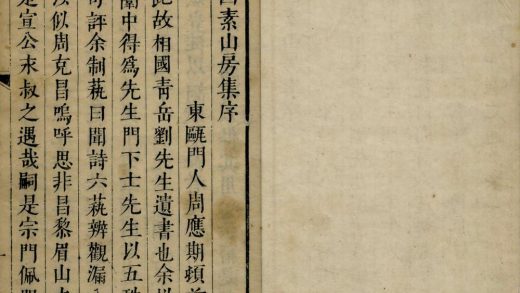 素山房集序
東甌門人周應期頓首
此故相國青岳劉先生遺書也余以
闈中得爲先生門下士先生以五
評余制蓺曰聞詩六蓺辨觀漏
似周克昌嗚呼思非昌黎眉山
宣公末叔之遇哉嗣是宗門佩